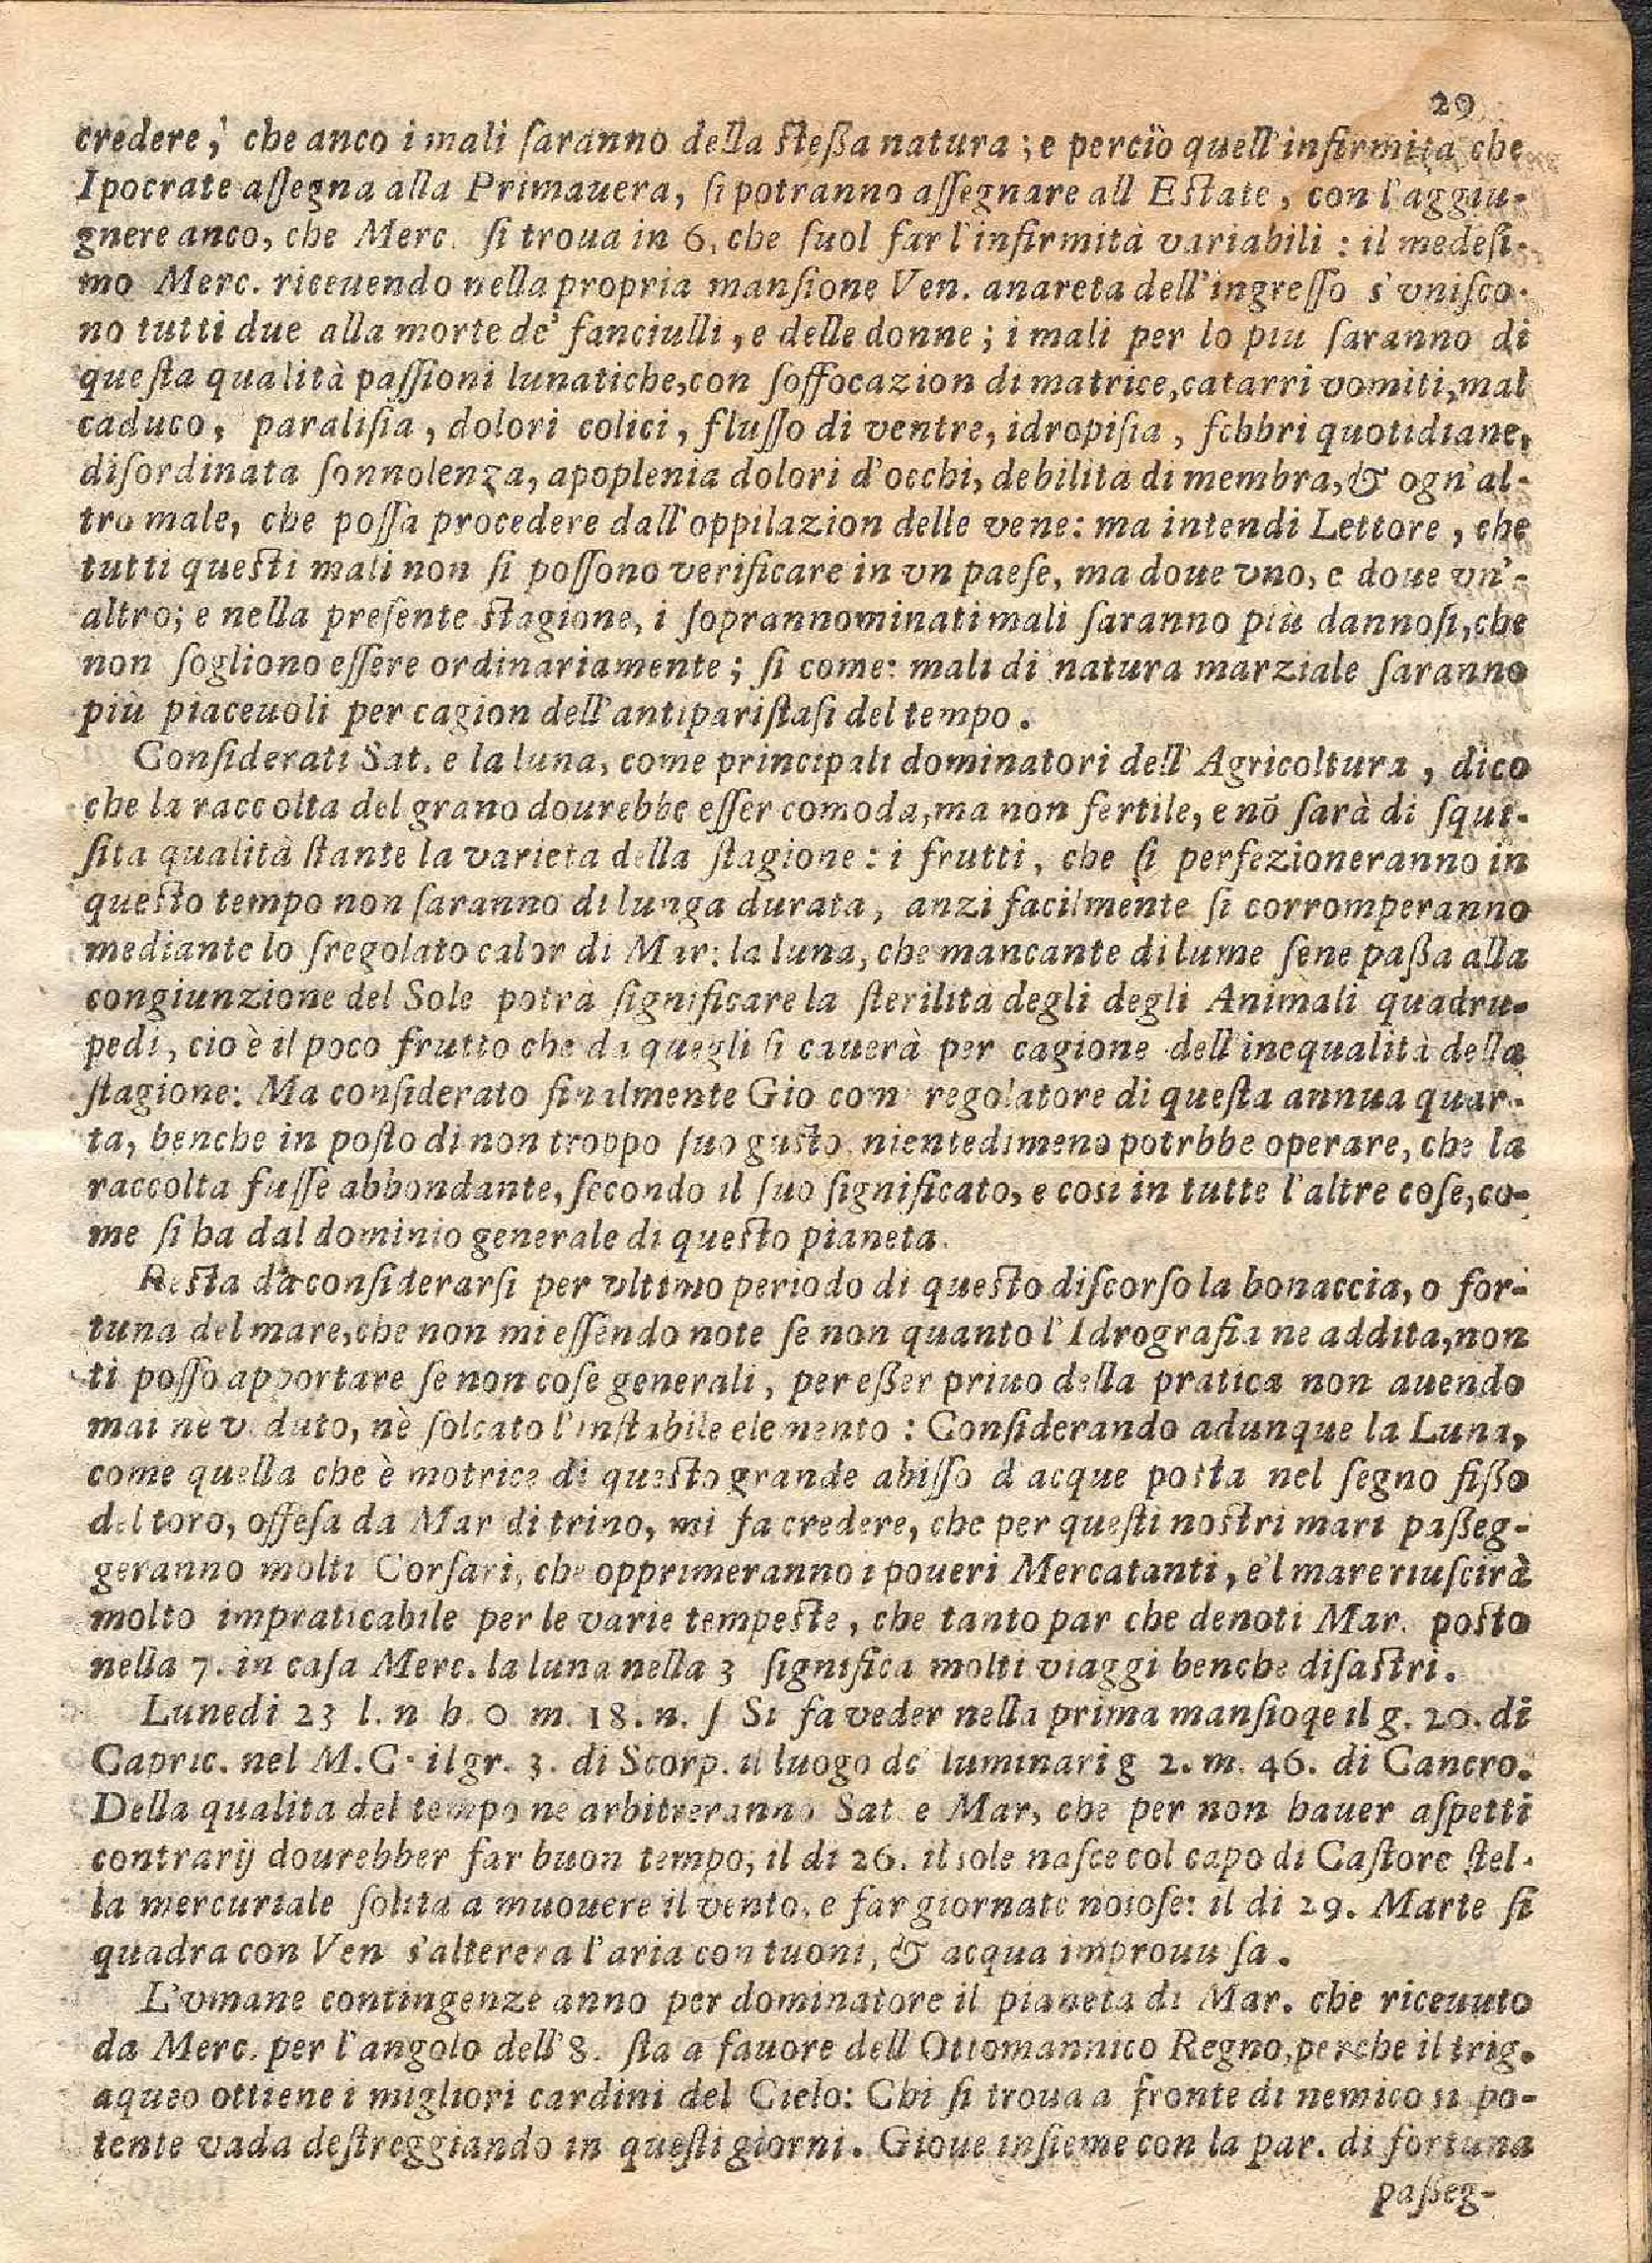 29
credere, che anco i mali ſaranno della ſteßa natura; e perciò quell'infirmita che
Ipocrate aſſegna alla Primauera, ſi potranno aſſegnare all Eſtate, con l'aggiu-
gnere anco, che Merc. ſi troua in 6, che ſuol far l'infirmità variabili: il medeſi-
mo Merc. riceuendo nella propria manſione Ven. anareta dell'ingreſſo s'vniſco-
no tutti due alla morte de' fanciulli, e delle donne; i mali per lo piu ſaranno di
queſta qualità paſſioni lunatiche, con ſoffocazion di matrice, catarri vomiti, mal
caduco, paraliſia, dolori colici, fluſſo di ventre, idropiſia, febbri quotidiane,
diſordinata ſonnolenza, apoplenia dolori d'occhi, debilita di membra, & ogn'al-
tro male, che poſſa procedere dall'oppilazion delle vene: ma intendi Lettore, che
tutti queſti mali non ſi poſſono verificare in vn paeſe, ma doue vno, e doue vn'-
altro; e nella preſente ſtagione, i ſoprannominati mali ſaranno più dannoſi, che
non ſogliono eſſere ordinariamente; ſi come: mali di natura marziale ſaranno
più piaceuoli per cagion dell'antipariſtaſi del tempo.
Conſiderati Sat. e la luna, come principali dominatori dell'Agricoltura, dico
che la raccolta del grano dourebbe eſſer comoda, ma non fertile, e nō ſarà di ſqui-
ſita qualità ſtante la varieta della ſtagione: i frutti, che ſi perfezioneranno in
queſto tempo non ſaranno di lunga durata, anzi facilmente ſi corromperanno
mediante lo ſregolato calor di Mar: la luna, che mancante di lume ſene paßa alla
congiunzione del Sole potrà ſignificare la ſterilità degli degli Animali quadru-
pedi, cio è il poco frutto che da quegli ſi cauerà per cagione dell'inequalità della
ſtagione: Ma conſiderato finalmente Gio com regolatore di queſta annua quar-
ta, benche in poſto di non troppo ſuo guſto, nientedimeno potrbbe operare, che la
raccolta fuſſe abbondante, ſecondo il ſuo ſignificato, e cosi in tutte l'altre coſe, co-
me ſi ha dal dominio generale di queſto pianeta.
Reſta da conſiderarſi per vltimo periodo di queſto diſcorſo la bonaccia, o for-
tuna del mare, che non mi eſſendo note ſe non quanto l'Idrografia ne addita, non
ti poſſo apportare ſe non coſe generali, per eßer priuo della pratica non auendo
mai nè veduto, nè ſolcato l'inſtabile elemento: Conſiderando adunque la Luna,
come quella che è motrice di queſto grande abiſſo d'acque poſta nel ſegno fißo
del toro, offeſa da Mar di trino, mi fa credere, che per queſti noſtri mari paßeg-
geranno molti Corſari, che opprimeranno i poueri Mercatanti, e'l mare riuſcirà
molto impraticabile per le varie tempeſte, che tanto par che denoti Mar. poſto
nella 7. in caſa Merc. la luna nella 3 ſignifica molti viaggi benche diſaſtri.
Lunedi 23 l. n h. 0 m. 18. n. ſ Si fa veder nella prima manſioqe il g. 20. di
Capric. nel M.C. il gr. 3. di Scorp. il luogo de' luminari g 2. m. 46. di Cancro.
Della qualita del tempo ne arbitreranno Sat e Mar, che per non hauer aſpetti
contrarij dourebber far buon tempo; il di 26. il sole naſce col capo di Caſtore ſtel-
la mercuriale ſolita a muouere il vento, e far giornate noioſe: il di 29. Marte ſi
quadra con Ven s'alterera l'aria con tuoni, & acqua improuuſa.
L'vmane contingenze anno per dominatore il pianeta di Mar. che riceuuto
da Merc. per l'angolo dell'8. ſta a fauore dell Ottomannico Regno, perche il trig.
aqueo ottiene i migliori cardini del Cielo: Chi ſi troua a fronte di nemico si po-
tente vada deſtreggiando in queſti giorni. Gioue inſieme con la par. di fortuna
paßeg-